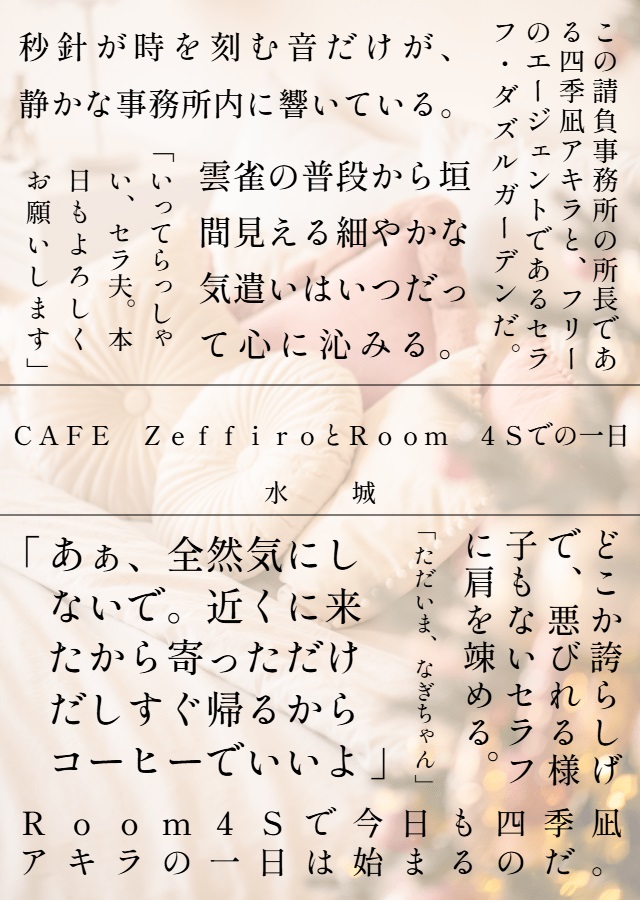 秒針が時を刻む音だけが、
静かな事務所内に響いている。
この請負事務所の所長であ
る四季凪アキラと、フリー
のエージェントであるセラ
フ・ダズルガーデンだ。
雲雀の普段から垣
間見える細やかな
気遣いはいつだっ
て心に沁みる。
「いってらっしゃ
い、セラ夫。本
日もよろしく
お願いします」
CAFE ZeffiroとRoom 4Sでの一日
水 城
どこか誇らしげ
で、悪びれる様
子もないセラフ
に肩を竦める。
「ただいま、なぎちゃん」
「あぁ、全然気にし
ないで。近くに来
たから寄っただけ
だしすぐ帰るから
コーヒーでいいよ」
Room4Sで今日も四季凪
アキラの一日は始まるのだ。